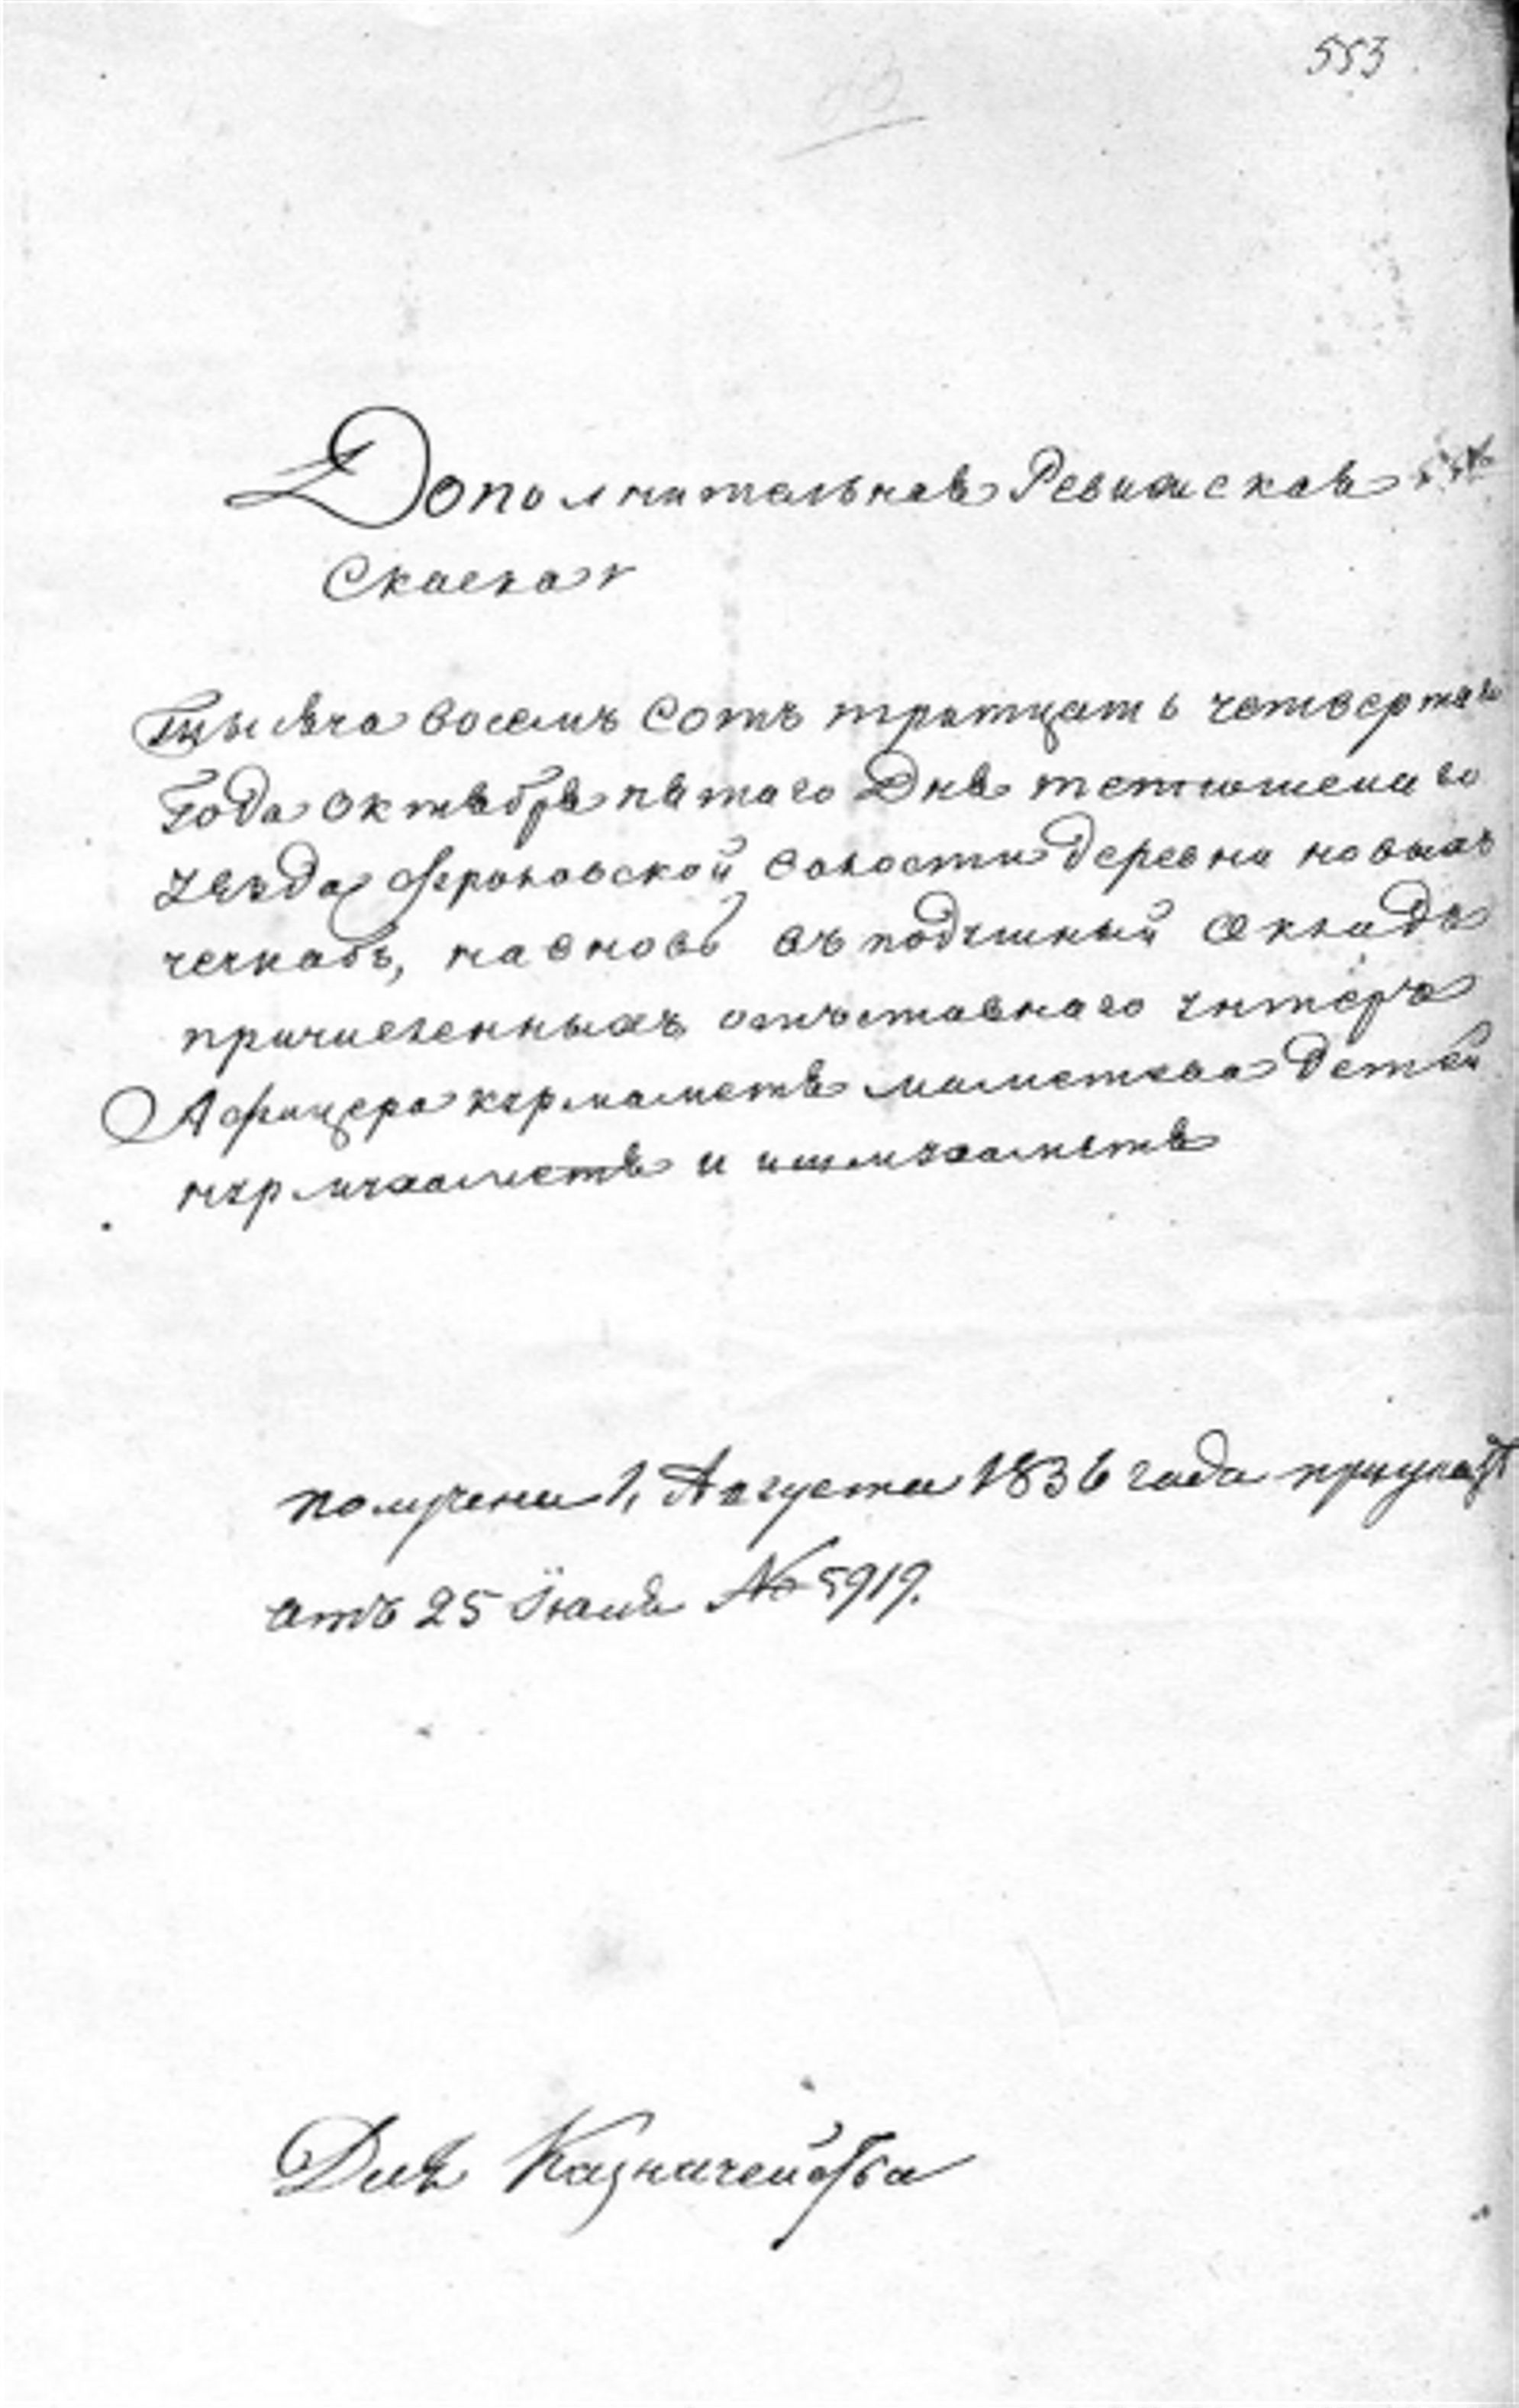 553
Дополнительная Ревижская
Скаска
Тысяча восемъ Сотъ тритцать четвертаго
Года октября пятаго Дня тетюшскаго
уезда Фроловской волости деревни новыхъ
чечкабъ, на вновь въ подушный окладъ
причисленныхъ отъставнаго унтеръ
Афицера курмаметя маметева детей
нурмухаметя и ишмухаметя
получена 1, Августа 1836 года при указѣ
отъ 25 Июля № 5919.
Для Казначейства